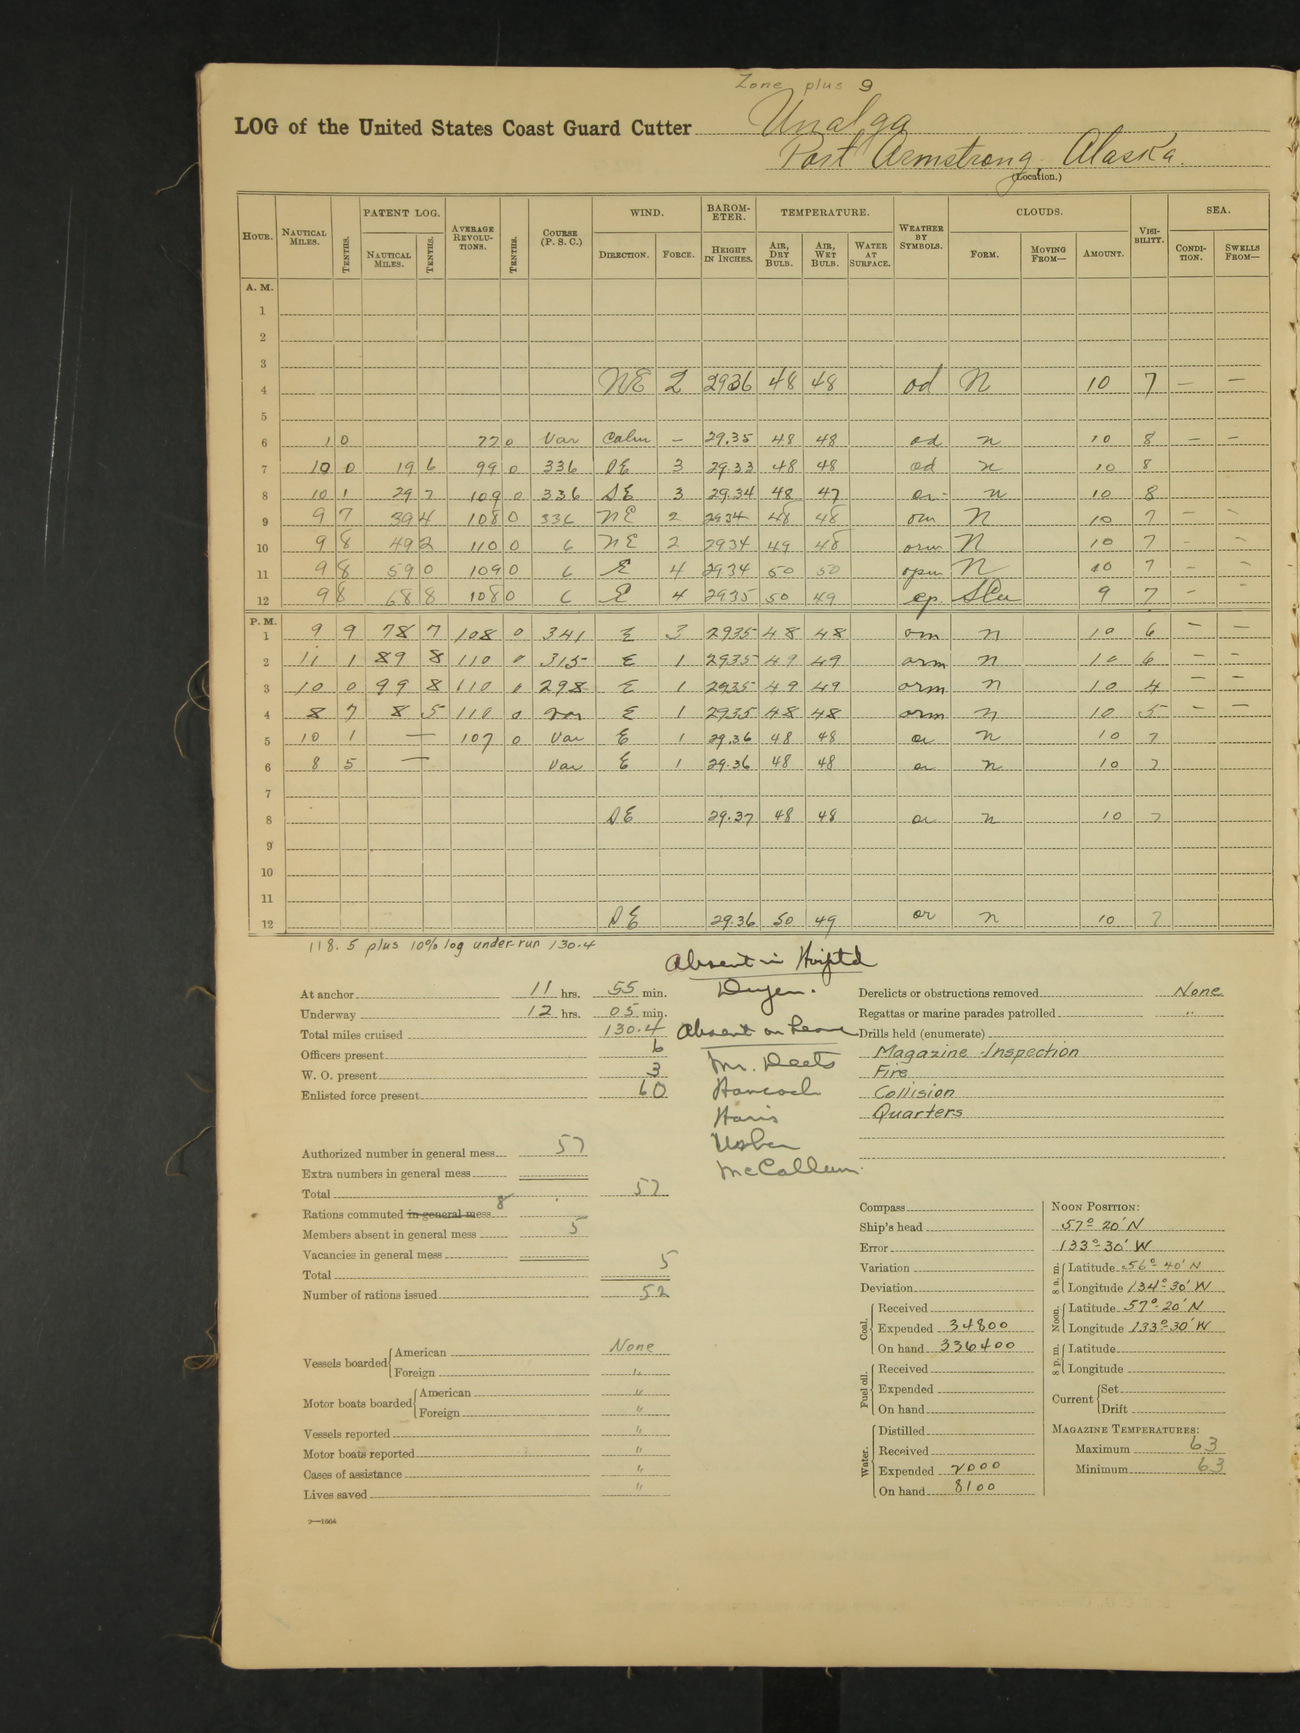 Zone plus 9
LOG of the United States Coast Guard Cutter Unalga
Port Armstrong, Alaska.
(Location.)
HOUR. NAUTICAL MILES. TENTHS. PATENT LOG. NAUTICAL MILES. TENTHS. AVERAGE REVOLUTIONS. TENTHS. COURSE (P. S. C.) WIND. DIRECTION. FORCE. BAROMETER. HEIGHT IN INCHES. TEMPERATURE. AIR, DRY BULB. AIR, WET BULB. WATER AT SURFACE. WEATHER BY SYMBOLS. CLOUDS. FORM. MOVING FROM— AMOUNT. VISIBILITY. SEA. CONDITION. SWELLS FROM—
A. M.
1
2
3
4 NE 2 2936 48 48 od N 10 7 — —
5
6 1 0 77 0 Var Calm — 29.35 48 48 od n 10 8 — —
7 10 0 19 6 99 0 336 SE 3 29.33 48 48 od n 10 8
8 10 1 29 7 109 0 336 SE 3 29.34 48 47 or n 10 8
9 9 7 39 4 108 0 336 NE 2 2934 48 48 om N 10 7 — —
10 9 8 49 2 110 0 6 NE 2 2934 49 48 orm N 10 7 — —
11 9 8 59 0 109 0 6 E 4 2934 50 50 opm N 10 7 — —
12 9 8 68 8 108 0 6 E 4 2935 50 49 cp SCu 9 7 — —
P. M.
1 9 9 78 7 108 0 341 E 3 2935 48 48 om n 10 6 — —
2 11 1 89 8 110 0 315 E 1 2935 49 49 orm n 10 6 — —
3 10 0 99 8 110 0 298 E 1 2935 49 49 orm n 10 4 — —
4 8 7 8 5 110 0 var E 1 2935 48 48 orm n 10 5 — —
5 10 1 — 107 0 Var E 1 29.36 48 48 or n 10 7
6 8 5 — Var E 1 29.36 48 48 or n 10 7
7
8 SE 29.37 48 48 or n 10 7
9
10
11
12 SE 29.36 50 49 or n 10 7
118.5 plus 10% log under-run 130.4
Absent in Hosptal
At anchor 11 hrs. 55 min.
Underway 12 hrs. 05 min.
Total miles cruised 130.4
Officers present 6
W. O. present 3
Enlisted force present 60
Absent on Leave
Mr. Deets
Hancock
Haris
McCallum.
Derelicts or obstructions removed None
Regattas or marine parades patrolled "
Drills held (enumerate)
Magazine Inspection
Fire
Collision
Quarters
Authorized number in general mess 57
Extra numbers in general mess
Total 57
Rations commuted in general mess 8
Members absent in general mess 5
Vacancies in general mess
Total 5
Number of rations issued 52
Vessels boarded American None
Foreign "
Motor boats boarded American "
Foreign "
Vessels reported "
Motor boats reported "
Cases of assistance "
Lives saved "
2—1664
Compass
Ship's head
Error
Variation
Deviation
Coal. Received
Expended 34800
On hand 336400
Fuel oil. Received
Expended
On hand
Water. Distilled
Received
Expended 2000
On hand 8100
NOON POSITION:
57° 20' N
133° 30' W
8 a.m. Latitude 56° 40' N
Longitude 134° 30' W
Noon. Latitude 57° 20' N
Longitude 133° 30' W
8 p.m. Latitude
Longitude
Current Set
Drift
MAGAZINE TEMPERATURES:
Maximum 63
Minimum 63